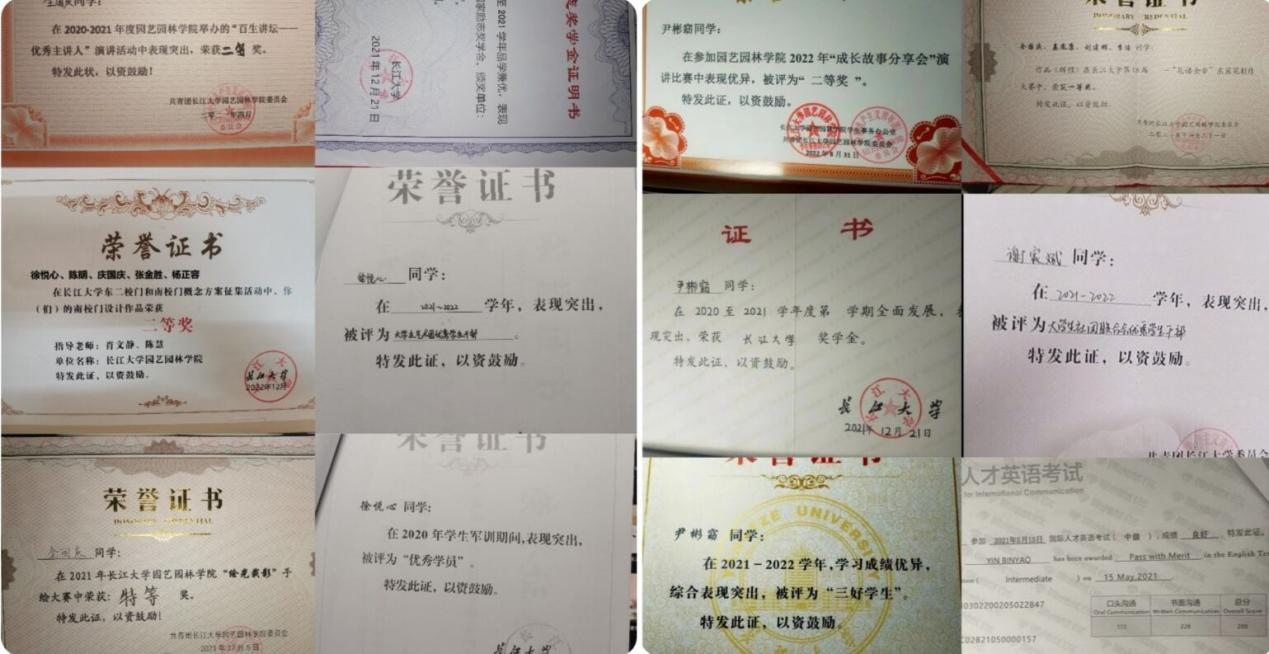 在 2020-2021 年度园艺园林学院举办的“百生讲坛——
优秀主讲人”演讲活动中表现突出，荣获二等 奖。
特发此状，以资鼓励！
共青团长江大学园艺园林学院委员会
奖学金证明书
至 2021 学年品学兼优，表现
国家励志奖学金。颁奖单位：
长江大学
2021年12月21日
荣誉证书
徐悦心、陈明、庆国庆、张金胜、杨正容
在长江大学东二校门和南校门概念方案征集活动中，你
（们）的南校门设计作品荣获
二等奖
指导老师：肖文静、陈慧
单位名称：长江大学园艺园林学院
特发此证，以资鼓励。
长江大学
2022年12月
荣誉证书
徐悦心 同学：
在 2021~2022 学年，表现突出，
被评为
特发此证，以资鼓励。
荣誉证书
HONORARY CREDENTIAL
同学：
在 2021 年长江大学园艺园林学院“绘光载影”手
绘大赛中荣获：特等 奖。
特发此证，以资鼓励！
共青团长江大学园艺园林学院委员会
2021年12月5日
荣誉证书
徐悦心 同学：
在 2020 年学生军训期间，表现突出，
被评为“优秀学员”。
特发此证，以资鼓励。
长江大学
尹彬窑同学：
在参加园艺园林学院 2022 年“成长故事分享会”演
讲比赛中表现优异，被评为“ 二等奖 ”。
特发此证，以资鼓励。
长江大学园艺园林学院学生事务办公室
共青团长江大学园艺园林学院委员会
2022年5月31日
荣誉证书
HONORARY CREDENTIAL
同学：
大赛中，荣获一等奖。
特发此证，以资鼓励。
共青团长江大学园艺园林学院委员会
证 书
尹彬窑 同学：
在 2020 至 2021 学年度第 学期全面发展，表
现突出，荣获 长江大学 奖学金。
特发此证，以资鼓励。
长江大学
2021年 12月 21日
谢家斌 同学：
在 2021-2022 学年，表现突出，
被评为大学生社团联合会优秀学生干部
特发此证，以资鼓励。
共青团长江大学委员会
荣誉证书
YANGTZE UNIVERSITY
尹彬窑 同学：
在 2021－2022 学年，学习成绩优异，
综合表现突出，被评为“三好学生”。
特发此证，以资鼓励。
人才英语考试
for International Communication
参加 2021年5月15日 国际人才英语考试（ 中级 ），成绩 良好 ，特发此证。
YIN BINYAO has been awarded Pass with Merit in the English Test
( Intermediate ) on 15 May,2021 .
030220020502284​7
口头沟通 书面沟通 总分
Oral Communication Written Communication Overall Score
C02821050000157